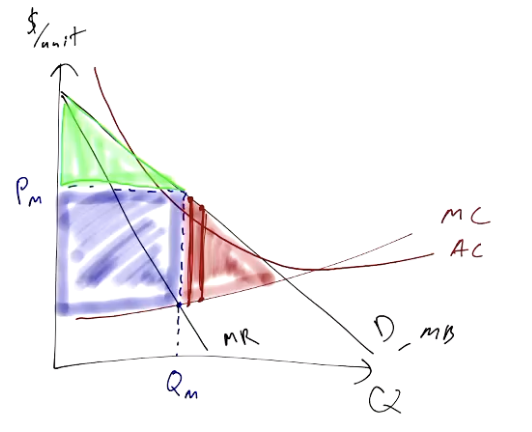 $/unit
PM
MC
AC
MR
D, MB
QM
Q